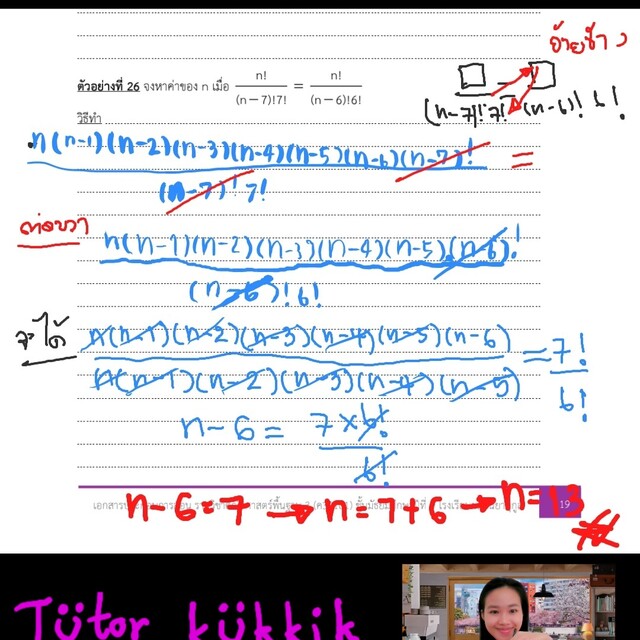 ย้ายข้าง
ตัวอย่างที่ 26 จงหาค่าของ n เมื่อ n!/(n−7)!7! = n!/(n−6)!6!
(n-7)!7! (n-6)! 6!
วิธีทำ
n(n-1)(n-2)(n-3)(n-4)(n-5)(n-6)(n-7)! =
(n-7)! 7!
ต่อขวา
n(n-1)(n-2)(n-3)(n-4)(n-5)(n-6)!
(n-6)! 6!
จะได้
n(n-1)(n-2)(n-3)(n-4)(n-5)(n-6) = 7!
n(n-1)(n-2)(n-3)(n-4)(n-5) 6!
n-6 = 7×6!
6!
n-6=7 → n=7+6 → n=13
19
Tütor kükkik